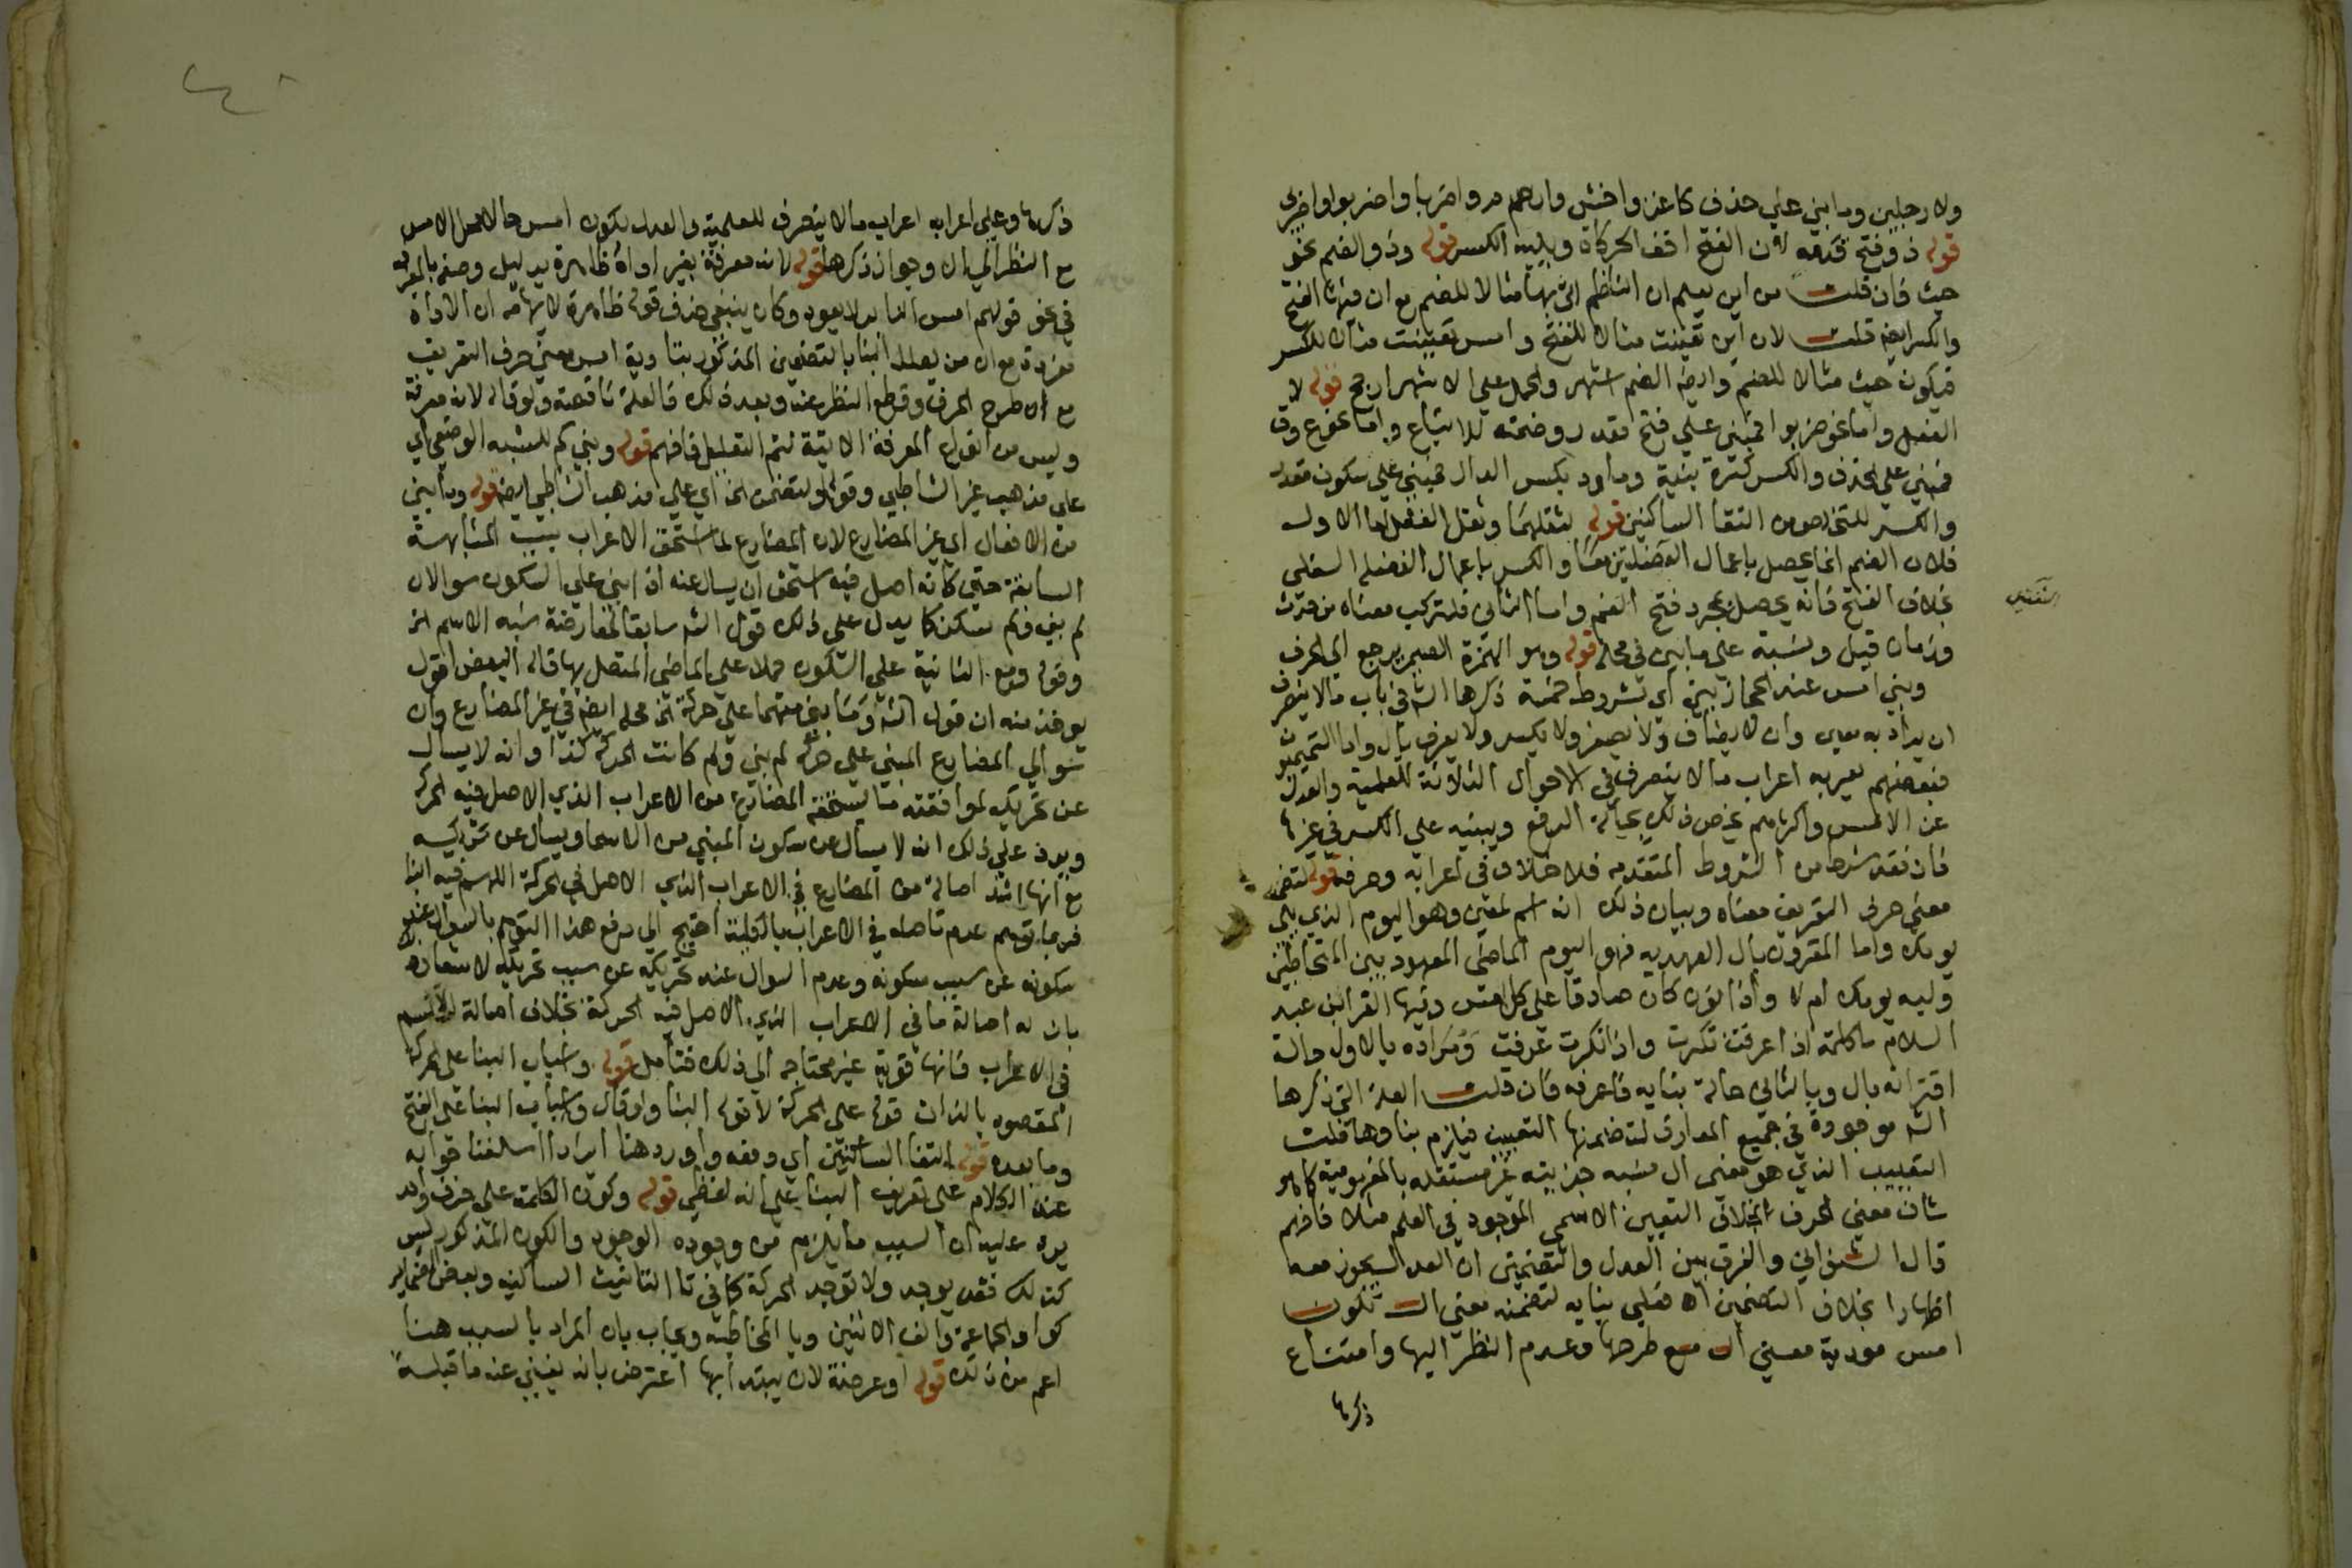 ولا رجلين وما بني علي حذف كاغز واخش وارم واضربا واضربوا واضربي
قوله ذو فتح قدمه لان الفتح اخف الحركات ويليه الكسر قوله وذو الضم نحو
حيث فان قلت من اين يعلم ان الناظم اتي بها مثالا للضم مع ان فيها الفتح
والكسر ايضا قلت لان اين تعينت مثالا للفتح وامس تعينت مثالا للكسر
فيكون حيث مثالا للضم وايضا الضم اشهر والحمل علي الاشهر ارجح قوله لا
الفعل واما نحو ضربوا فمبني علي فتح مقدر وضمته للاتباع واما نحو ع وق
فمبني علي الحذف والكسر كسرة بنية وما رد بكسر الدال فمبني علي سكون مقدر
والكسر للتخلص من التقا الساكنين قوله لثقلهما وثقل الفعل اما الاول
فلان الضم انما يحصل باعمال العضلتين معا والكسر باعمال العضلة السفلي
بخلاف الفتح فانه يحصل بمجرد فتح الفم واما الثاني فلتركب معناه من حدث
وزمان قيل ونسبة علي ما بين في محله قوله وهو الهمزة الضمير يرجع الي الحرف
وبني امس عند الحجازيين اي بشروط خمسة ذكرها الش في باب مالا ينصرف
ان يراد به معين وان لا يضاف ولا يصغر ولا يكسر ولا يعرف بال واما التميميون
فبعضهم يعربه اعراب مالا ينصرف في الاحوال الثلاثة للعلمية والعدل
عن الامس واكثرهم يخص ذلك بحالة الرفع ويبنيه علي الكسر في غيرها
فان فقد شرط من الشروط المتقدمه فلا خلاف في اعرابه وصرفه قوله لتضمنه
معني حرف التعريف معناه وبيان ذلك انه اسم لمعين وهو اليوم الذي يلي
يومك واما المقرون بال العهديه فهو اليوم الماضي المعهود بين المتخاطبين
وليه يومك ام لا واذا نون كان صادقا علي كل امس وفيها القز ابن عبد
السلام ما كلمة اذا عرفت نكرت واذا نكرت عرفت ومراده بالاول حالة
اقترانه بال وبالثاني حالة بنايه فاعرفه فان قلت العلة التي ذكرها
الش موجودة في جميع المعارف لتضمنها التعيين فيلزم بناوها قلت
التعيين الذي هو معني ال نسبه جزييته غير مستقله بالمفهومية كما هو
شان معني الحرف بخلاف التعيين الاسمي الموجود في العلم مثلا فافهم
قال الشنواني والفرق بين العدل والتضمين ان العدل يجوز معه
اظهار ال بخلاف التضمين اه فعلي بنايه لتضمنه معني ال تكون
امس مودية معني ال مع طرحها وعدم النظر اليها وامتناع
ذكرها
ذكرها وعلي اعرابه اعراب مالا ينصرف للعلمية والعدل يكون امس حالا محل الامس
مع النظر الي ال وجواز ذكرها قوله لانه معرفة بغير اداة ظاهرة بدليل وصفه بالمعرفه
في نحو قولهم امس الدابر لا يعود وكان ينبغي حذف قوله ظاهرة لايهامه ان الاداة
مقدرة مع ان من يعلل البنا بالتضمين المذكور بتادية امس معني حرف التعريف
مع اه طرح الحرف وقطع النظر عنه وبعد ذلك فالعلة ناقصة ولو قال لانه معرفة
وليس من انواع المعرفة الاتية لتم التعليل فافهم قوله وبني كم للشبه الوضعي اي
علي مذهب غير الشاطبي وقوله ولتضمن الخ اي علي مذهب الشاطبي ايضا قوله وما بني
من الافعال اي غير المضارع لان المضارع لما استحق الاعراب بسبب المشابهة
السابقة حتي كانه اصل فيه استحق ان يسال عنه اذا بني علي السكون سوالان
لم بني ولم سكن كما يدل علي ذلك قول الش سابقا لمعارضة شبه الاسم الخ
وقوله ومع الثانية علي السكون حملا علي الماضي المتصل بها قال البعض اقول
يوخذ منه ان قول الش وما بني منهما علي حركة الخ محله ايضا في غير المضارع وان
سوالي المضارع المبني علي حركة لم بني ولم كانت الحركة كذا وانه لا يسال
عن تحريكه لموافقته ما يستحقه المضارع من الاعراب الذي الاصل فيه الحركة
ويرد علي ذلك انه لا يسال عن سكون المبني من الاسما ويسال عن تحريكه
مع انها اشد اصالة من المضارع في الاعراب الذي الاصل في الحركة اللهم فيه البنا
فربما توهم عدم تاصله في الاعراب بالكلية احتيج الي دفع هذا التوهم بالسوال عند
سكونه عن سبب سكونه وعدم السوال عند تحريكه عن سبب تحريكه لاشعاره
بان له اصالة ما في الاعراب الذي الاصل فيه الحركة بخلاف اصالة الاسم
في الاعراب فانها قوية غير محتاجه الي ذلك فتامل قوله واسباب البنا علي الحركة
المقصود بالذات قوله علي الحركة لا قوله البنا واوقال واسباب البنا علي الفتح
وما بعده قوله التقا الساكنين اي دفعه واورد هنا ايرادا اسلفنا جوابه
عند الكلام علي تعريف البنا علي انه لفظي قوله وكون الكلمة علي حرف واحد
يرد عليه ان السبب ما يلزم من وجوده الوجود والكون المذكور ليس
كذلك فقد يوجد ولا توجد الحركة كما في تا التانيث الساكنه وبعض الضماير
كواو الجماعة والف الاثنين ويا المخاطبه ويجاب بان المراد بالسبب هنا
اعم من ذلك قوله او عرضة لان يبتدا بها اعترض بانه يغني عنه ما قبله